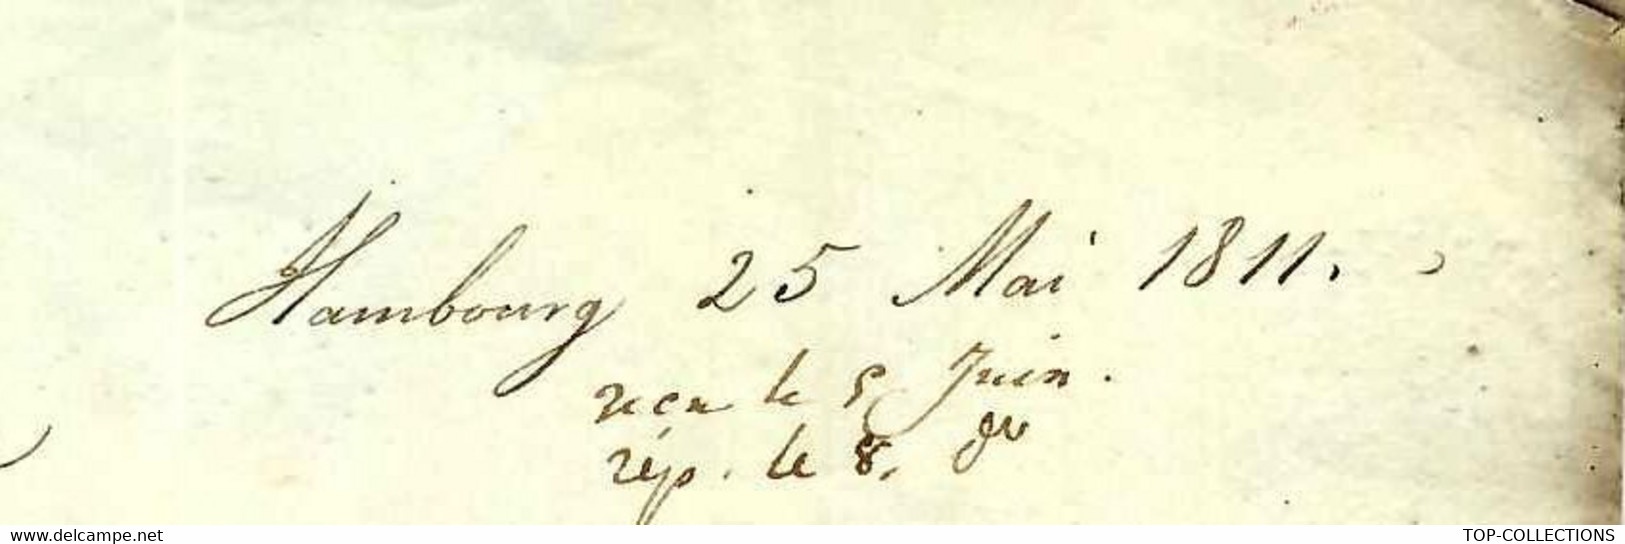 Hambourg 25 Mai 1811.
recu le 5 Juin.
rép. le 8. do
delcampe.net
TOP-COLLECTIONS